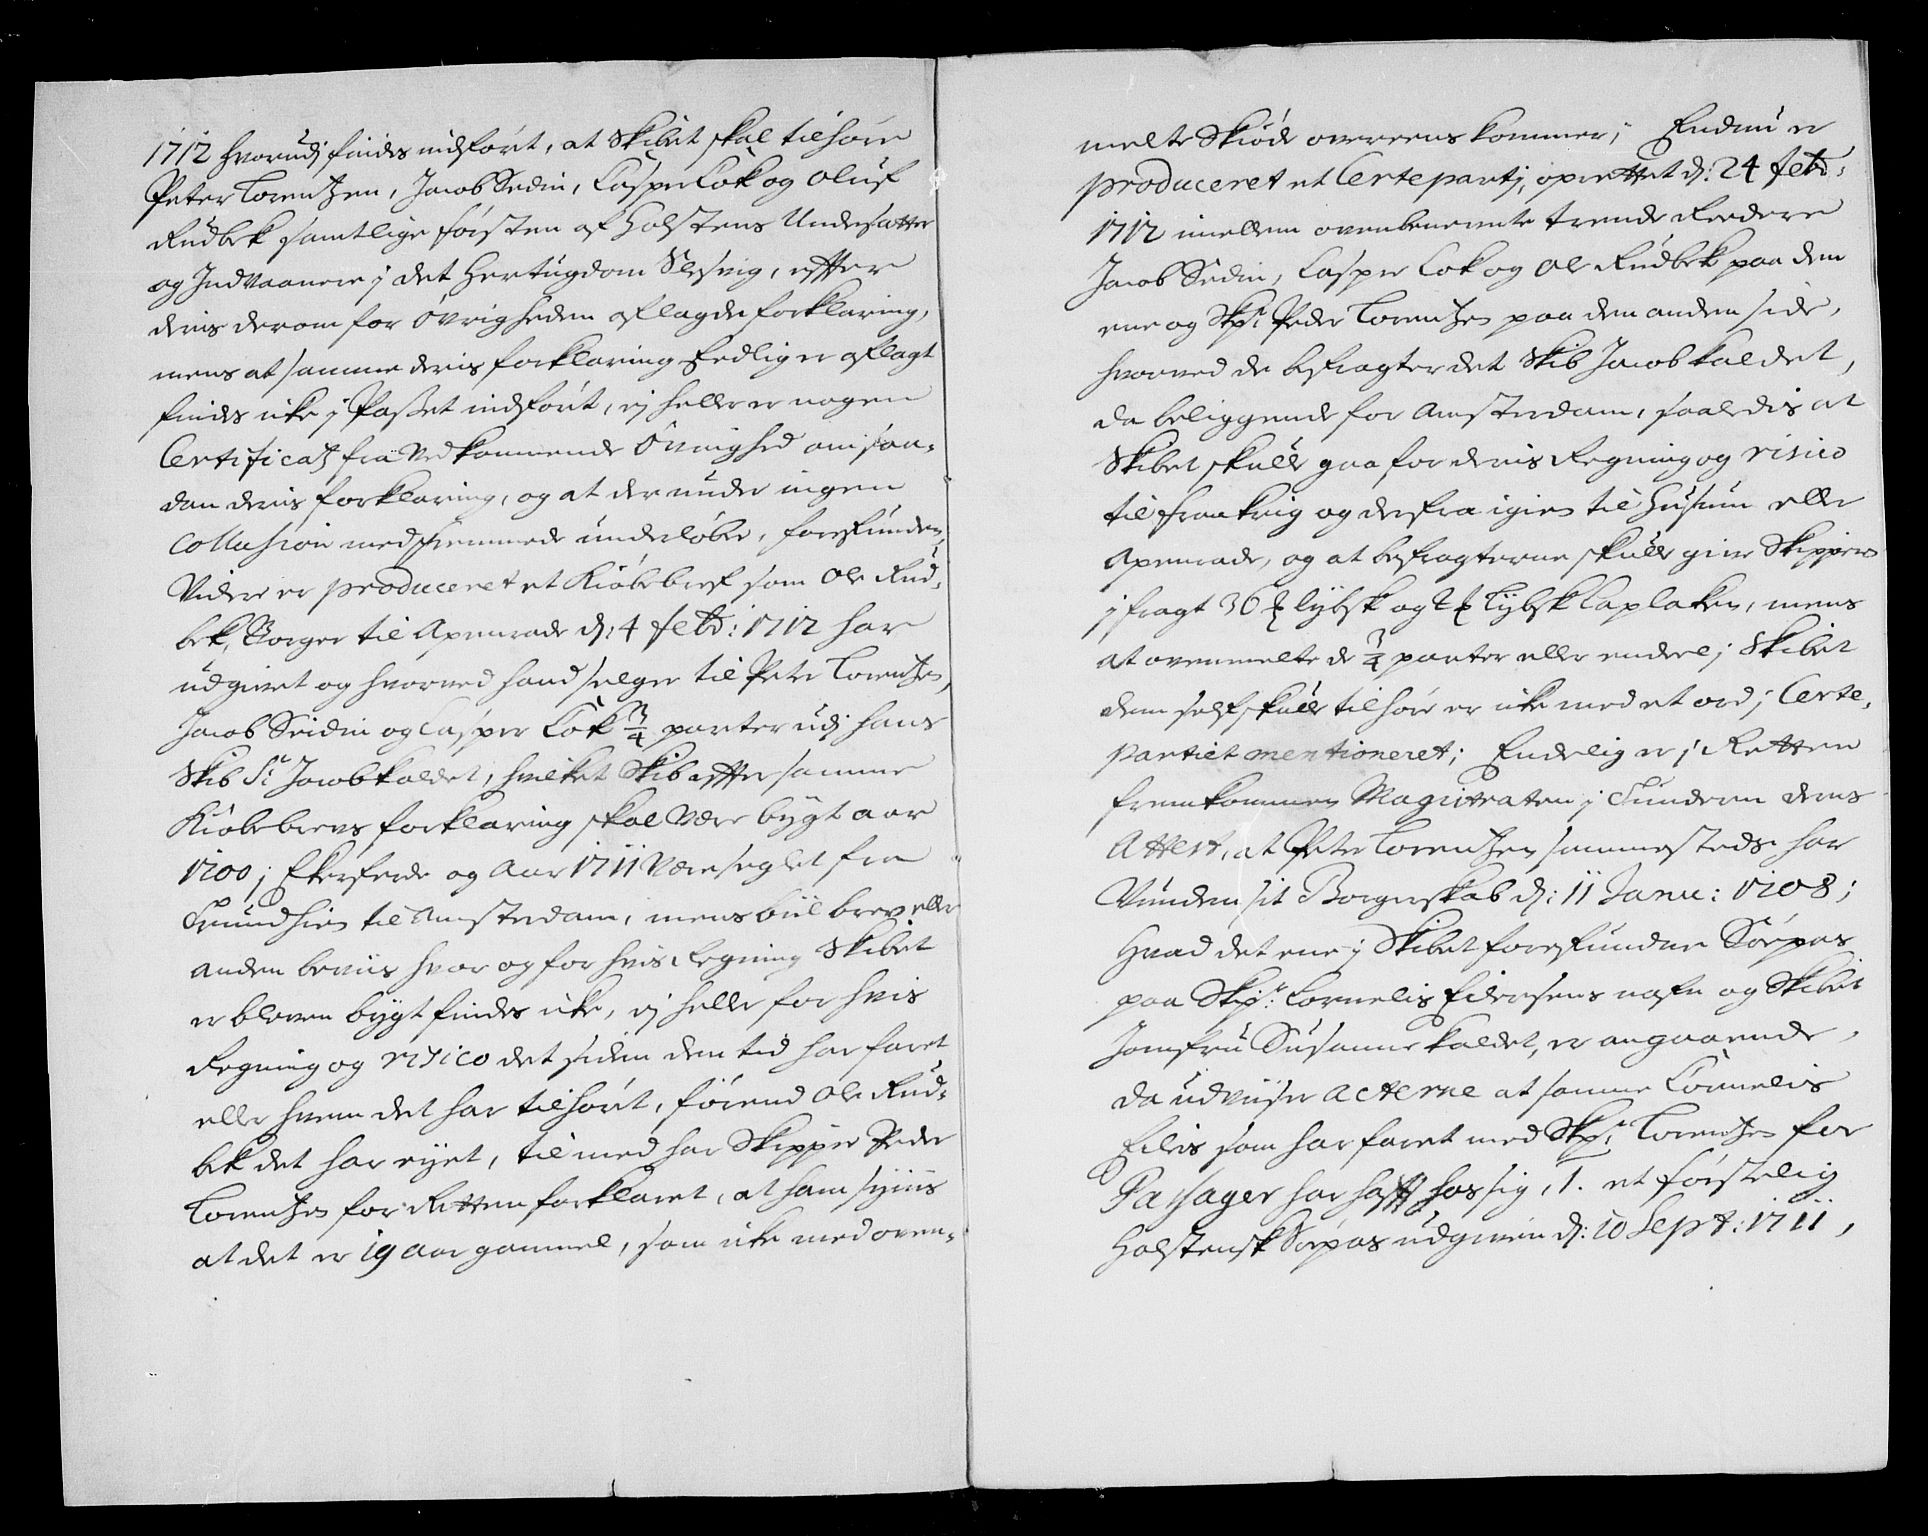 1712 hvorudj findes indført, at Skibet skal tilhøre
Peter Lorentzen, Jacob Sedin, Casper Cok og Oluf
Rudbek samtlige førsten af Holstens Undersatter
og Indvaanere j det Hertugdom Slesvig, effter
deris derom for Øvrigheden aflagde forklaring,
mens at samme deris forklaring Eedlig er aflagt
findes icke j Passet indført, ej heller er nogen
Certificatz fra Vedkommende Øvrighed om saa-
dan deris forklaring, og at derunder ingen
Collusion med fremmede underløber, forefunden,
Videre er produceret et Kiøbebref som Ole Rud-
bek, Borger til Apenrade d: 4 Febr: 1712 har
udgivet og hvorved hand selger til Peter Lorentzen,
Jacob Seidin og Casper Cok 3/4 parter udj hans
Skib St Jacob kaldet, hvilket Skib effter samme
Kiøbebrevs forklaring skal være bygt aar
1700 j Ekerferde og Aar 1711 være seglet fra
Trundhiem til Amsterdam, mens biilbrev eller
anden beviis hvor og for hvis Regning Skibet
er bleven bygt findes icke, ej heller for hvis
Regning og risico det siden den tid har faret
eller hvem det har tilhørt, førend Ole Rud-
bek det har eyet, til med har Skipper Peder
Lorentzen for Retten forklaret, at ham syniis
at det er 19 aar gammel, som icke med oven-
melte Skiøde overeens kommer; Endnu er
produceret et Certepartj, oprettet d: 24 Febr:
1712 imellem ovenbenevnte trende Reedere
Jacob Sedin, Casper Cok og Ole Rudbek paa den
ene og Skpr Peder Lorentzen paa den anden side,
hvorved de befragter det Skib Jacob kaldet,
da beliggende for Amsterdam, saaledis at
Skibet skulle gaa for deris Regning og risico
til frankrig og derfra igien til Husum eller
Apenrade, og at befragterne skulle give Skipperen
j fragt 36 lybsk og 2 lybsk Caplaken, mens
at ovenmelte de 3/4 parter eller endeel j Skibet
dem self skulle tilhøre er icke med et ord j Certe-
partiet mentioneret; Endelig er j Retten
fremkommen Magistraten j Tunderen deris
Attest, at Peter Lorentzen sammesteds har
Vunden sit Borgerskab d: 11 Janu: 1708;
Hvad det ene j Skibet forefundne Søepas
paa Skpr: Cornelis Eilersens nafn og Skibet
Jomfru Susanne kaldet, er angaaende,
da udviiser Acterne at samme Cornelis
Eilers som har faret med Skpr: Lorentzen for
Passager har hafft hos sig, 1. et førstelig
Holstensk Søepas udgiven d: 10 Sept: 1711,